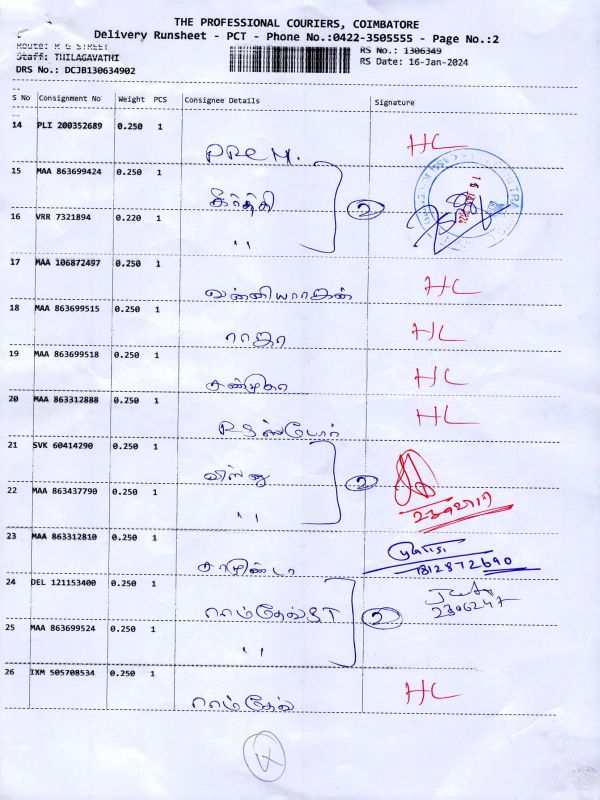 THE PROFESSIONAL COURIERS, COIMBATORE
Delivery Runsheet - PCT - Phone No.:0422-3505555 - Page No.:2
Route: R G STREET
RS No.: 1306349
Staff: THILAGAVATHI
RS Date: 16-Jan-2024
DRS No.: DCJB130634902
S No Consignment No Weight PCS Consignee Details Signature
14 PLI 200352689 0.250 1 HC
PREM.
15 MAA 863699424 0.250 1
கீர்த்தி 2
16 VRR 7321894 0.220 1
"
17 MAA 106872497 0.250 1 HC
வன்னியராஜன்
18 MAA 863699515 0.250 1 HC
ராஜா
19 MAA 863699518 0.250 1 HC
20 MAA 863312888 0.250 1 HC
21 SVK 60414290 0.250 1
2
22 MAA 863437790 0.250 1
"
23 MAA 863312810 0.250 1
24 DEL 121153400 0.250 1
2306247
2
25 MAA 863699524 0.250 1
"
26 IXM 505708534 0.250 1 HC
ராம்தேவ்